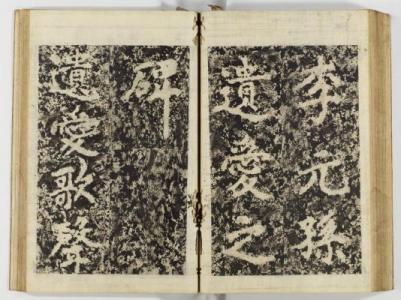 李元孫
遺愛之
碑
遺愛歌聲